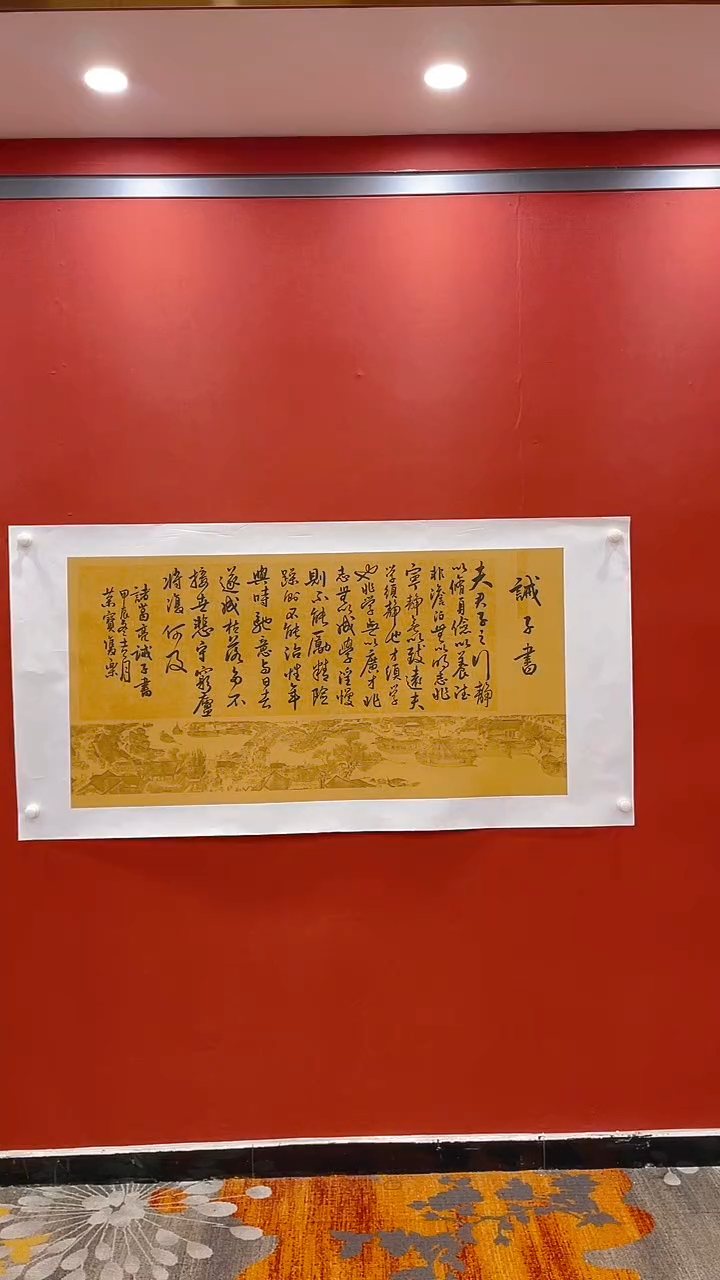 誡子書
夫君子之行静
以脩身儉以養德
非澹泊無以明志非
寧静無以致遠夫
学須静也才須学
也非学無以廣才非
志無以成學淫慢
則不能勵精險
躁則不能治性年
與時馳意与日去
遂成枯落多不
接世悲守窮廬
将復何及
諸葛亮誡子書
甲辰冬十一月